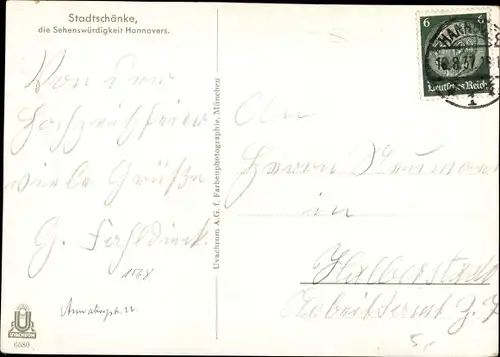 Stadtschänke,
die Sehenswürdigkeit Hannovers.
Von der
Hochzeitsfeier
viele Grüße
G.
1568
UVACHROM
6680
Uvachrom A.G. f. Farbenphotographie, München
6
Deutsches Reich
An
Herrn Neumann
in
Halberstadt